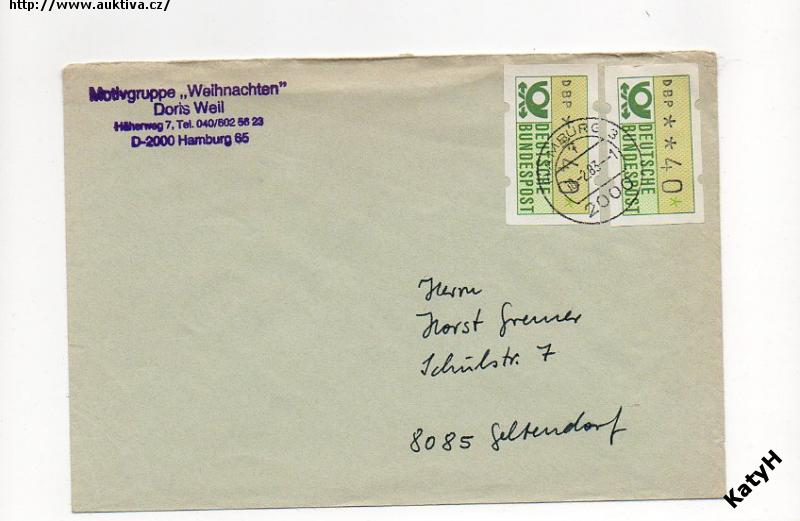 http://www.auktiva.cz/
Motivgruppe „Weihnachten"
Doris Weil
Häherweg 7, Tel. 040/602 56 23
D-2000 Hamburg 65
DBP
DEUTSCHE
BUNDESPOST
DBP **40*
DEUTSCHE
BUNDESPOST
HAMBURG
2000
Herrn
Horst Gremer
Schulstr. 7
8085 Geltendorf
KatyH